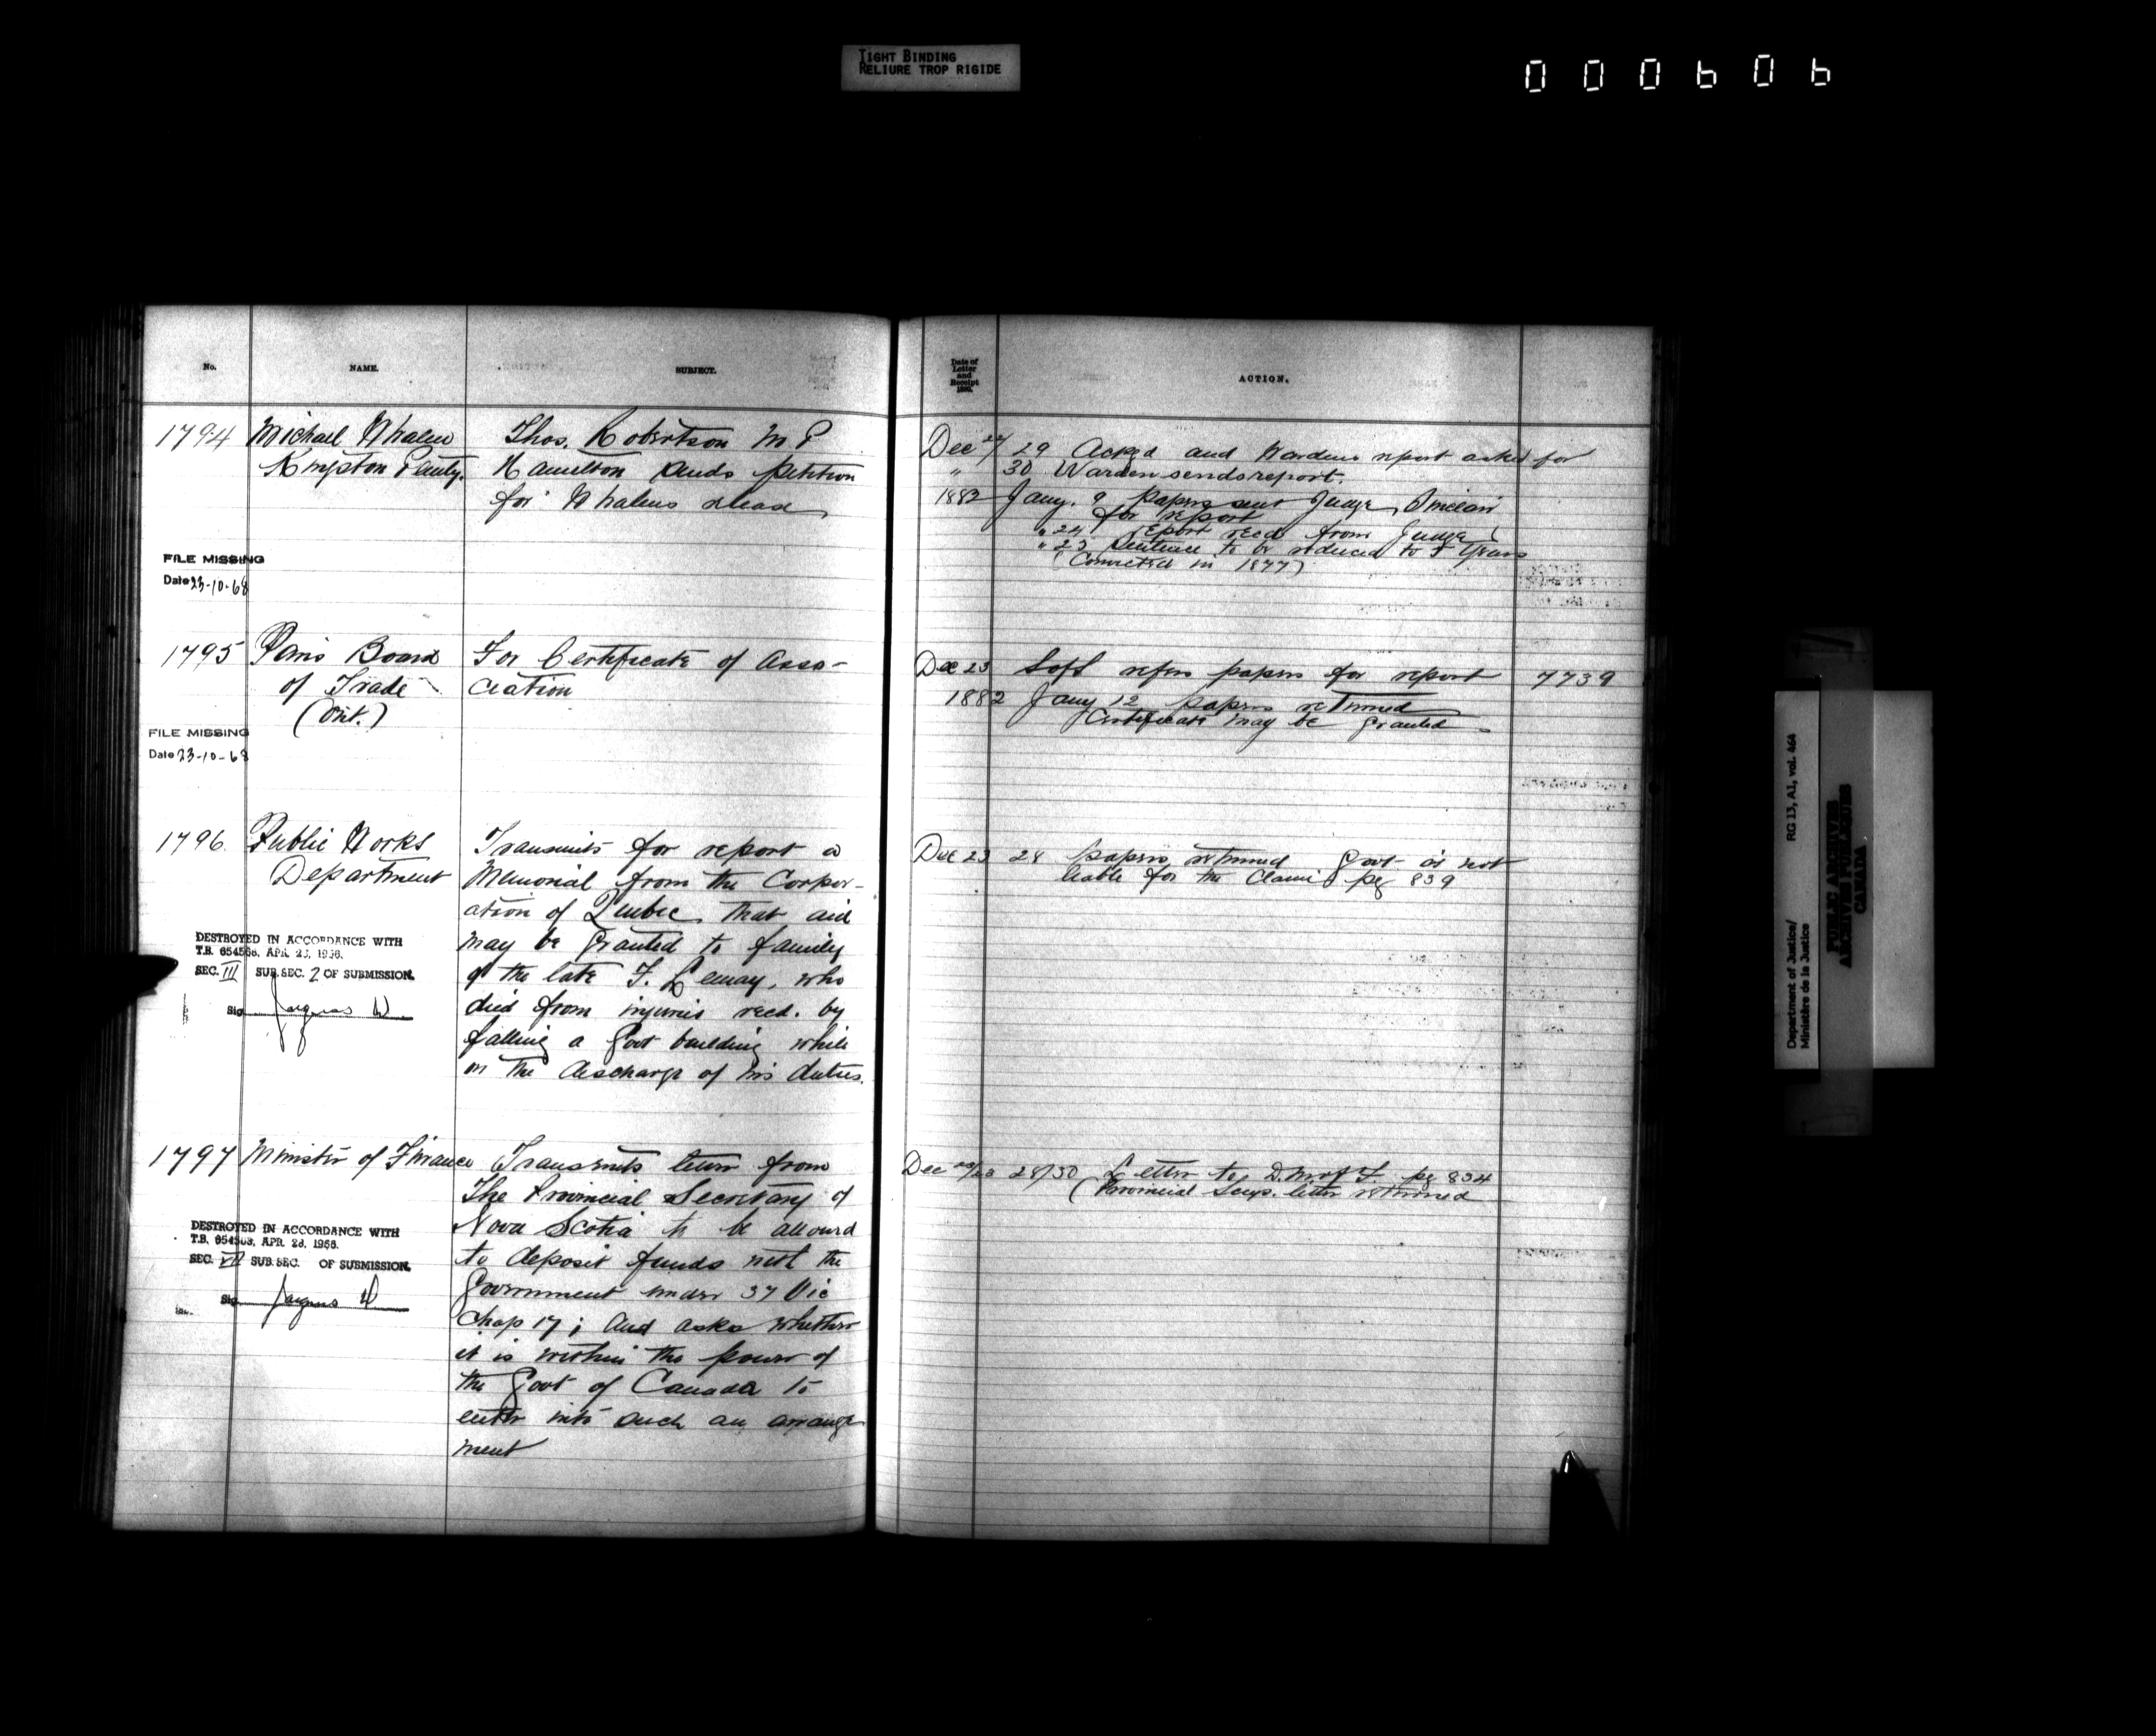 TIGHT BINDING
RELIURE TROP RIGIDE
000606
No.
NAME.
SUBJECT.
Date of
Letter
and
Receipt
ACTION.
1794 Michael Whalen Thos. Robertson M P
Kingston Penty. Hamilton sends petition
for Whalens release
Dec 29 Ackgd and Wardens report asked for
" 30 Warden sends report.
1882 Jany. 9 papers sent Judge Sinclair
for report
" 24 report recd from Judge
" 23 Sentence to be reduced to 5 Years
(Convicted in 1877)
FILE MISSING
Date 23-10-68
1795 Paris Board For Certificate of Asso-
of Trade ciation
(Ont.)
Dec 23 SofS refers papers for report 7739
1882 Jany 12 papers returned
Certificate may be granted
FILE MISSING
Date 23-10-68
1796 Public Works Transmits for report a
Department Memorial from the Corpor-
ation of Quebec that aid
may be granted to family
of the late F. Lemay, who
died from injuries recd. by
falling a Govt building while
in the discharge of his duties.
Dec 23 28 papers returned Govt is not
liable for the Claim pg 839
DESTROYED IN ACCORDANCE WITH
T.B. 654568, APR. 23, 1956.
SEC. III SUB.SEC. 2 OF SUBMISSION.
Sig
1797 Minister of Finance Transmits letter from
The Provincial Secretary of
Nova Scotia to be allowed
to deposit funds with the
Government under 37 Vic
Chap 17; and asks whether
it is within the power of
the Govt of Canada to
enter into such an arrange
ment
Dec 28/30 Letter to D.M. of F. pg 834
(Provincial Secys. letter returned
DESTROYED IN ACCORDANCE WITH
T.B. 654568, APR. 23, 1956.
SEC. VII SUB.SEC. OF SUBMISSION.
Sig
Department of Justice/ RG 13, A1, vol. 464
Ministère de la Justice
PUBLIC ARCHIVES
ARCHIVES PUBLIQUES
CANADA